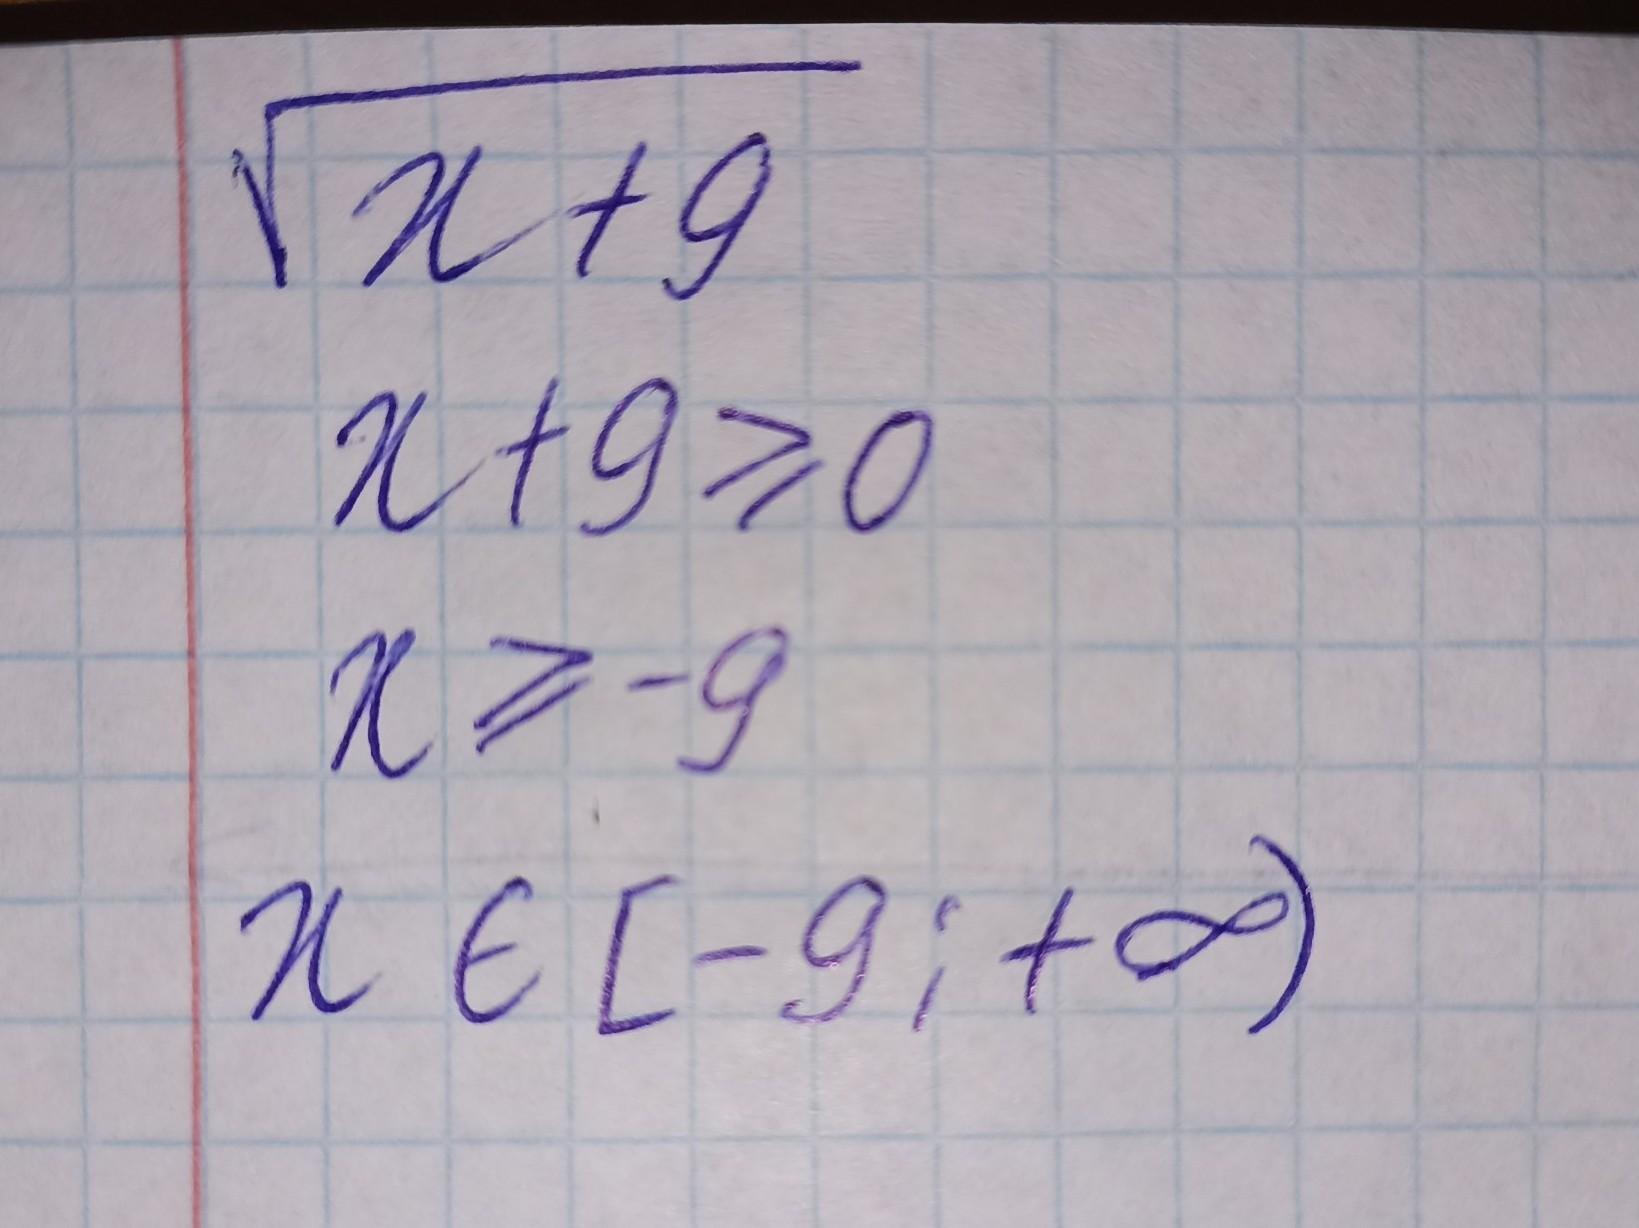 √x+9
x+9⩾0
x⩾-9
x∈[-9;+∞)